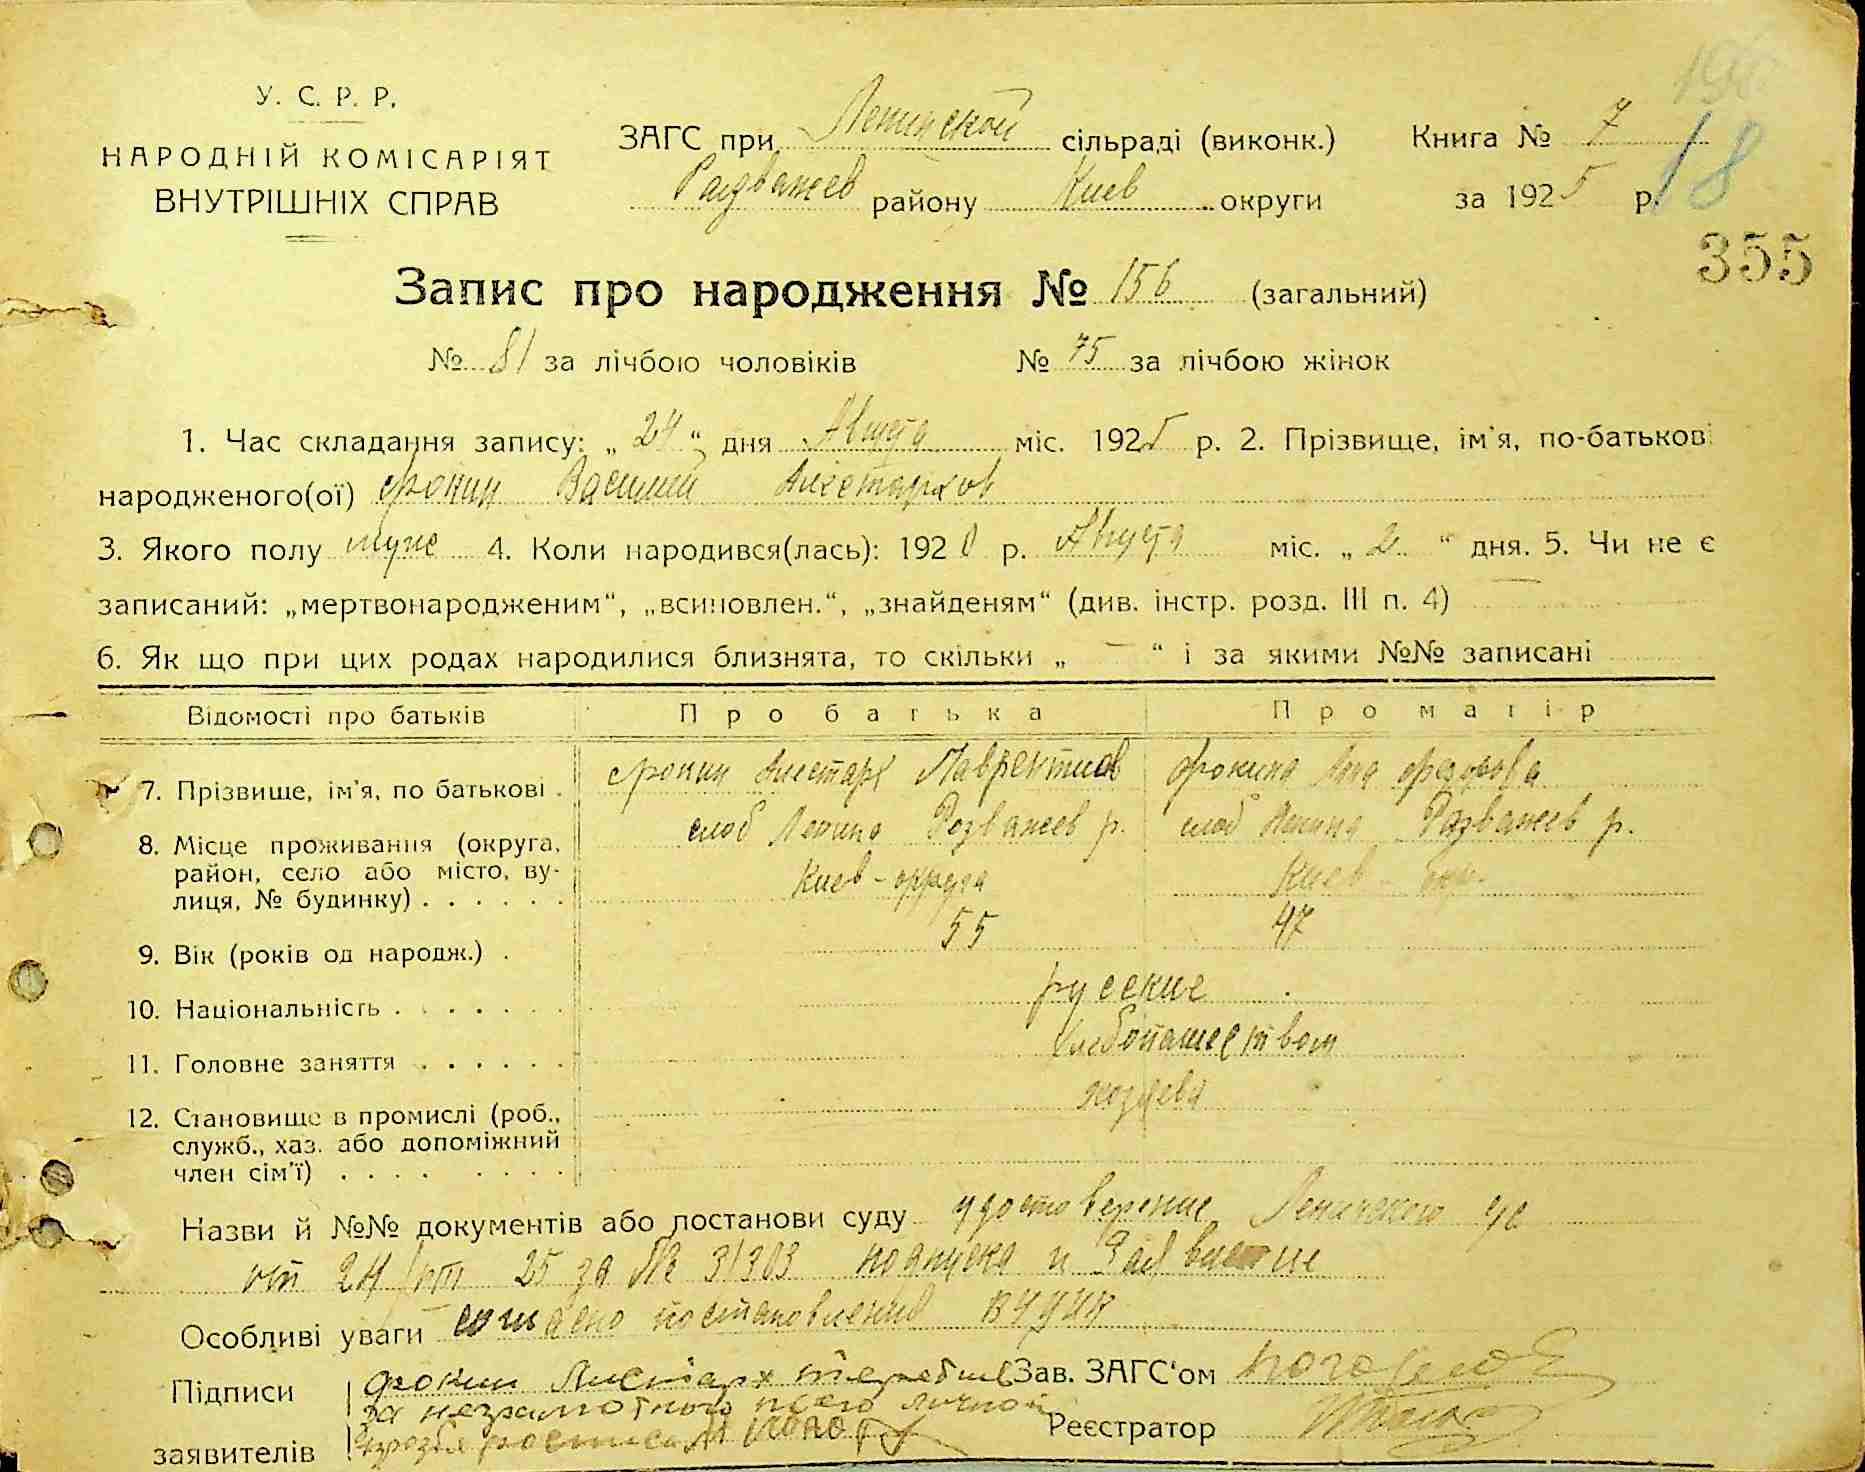 У. С. Р. Р.
НАРОДНІЙ КОМІСАРІЯТ
ВНУТРІШНІХ СПРАВ
ЗАГС при Ленинской сільраді (виконк.) Книга № 7
Розважев району Киев округи за 1925 р.
18
355
Запис про народження № 156 (загальний)
№ 81 за лічбою чоловіків № 75 за лічбою жінок
1. Час складання запису: „24“ дня Августа міс. 1925 р. 2. Прізвище, ім'я, по-батькові
народженого(ої) Фокин Василий Аристархов
3. Якого полу муже 4. Коли народився(лась): 1920 р. Августа міс. „2“ дня. 5. Чи не є
записаний: „мертвонародженим“, „всиновлен.“, „знайденям“ (див. інстр. розд. III п. 4)
6. Як що при цих родах народилися близнята, то скільки „ — “ і за якими №№ записані
Відомості про батьків Про батька Про матір
7. Прізвище, ім'я, по батькові . Фокин Аристарх Лаврентиев Фокина Федорова
8. Місце проживання (округа, район, село або місто, вулиця, № будинку) . . . . . .
слоб Ленина Розважев р. слоб Ленина Розважев р.
Киев - округа Киев - окр.
9. Вік (років од народж.) . 55 47
10. Національність . . . . . . . русские
11. Головне заняття . . . . . . хлебопашеством
12. Становище в промислі (роб., служб., хаз. або допоміжний член сім'ї) . . . . . . . .
хозяева
Назви й №№ документів або постанови суду удостоверение Ленинского
от 24/ 25 за № 31303 и
Особливі уваги согласно постановления ВУЦИК
Підписи Фокин Аристарх Зав. ЗАГС'ом
за неграмотного его личной
заявителів Реєстратор